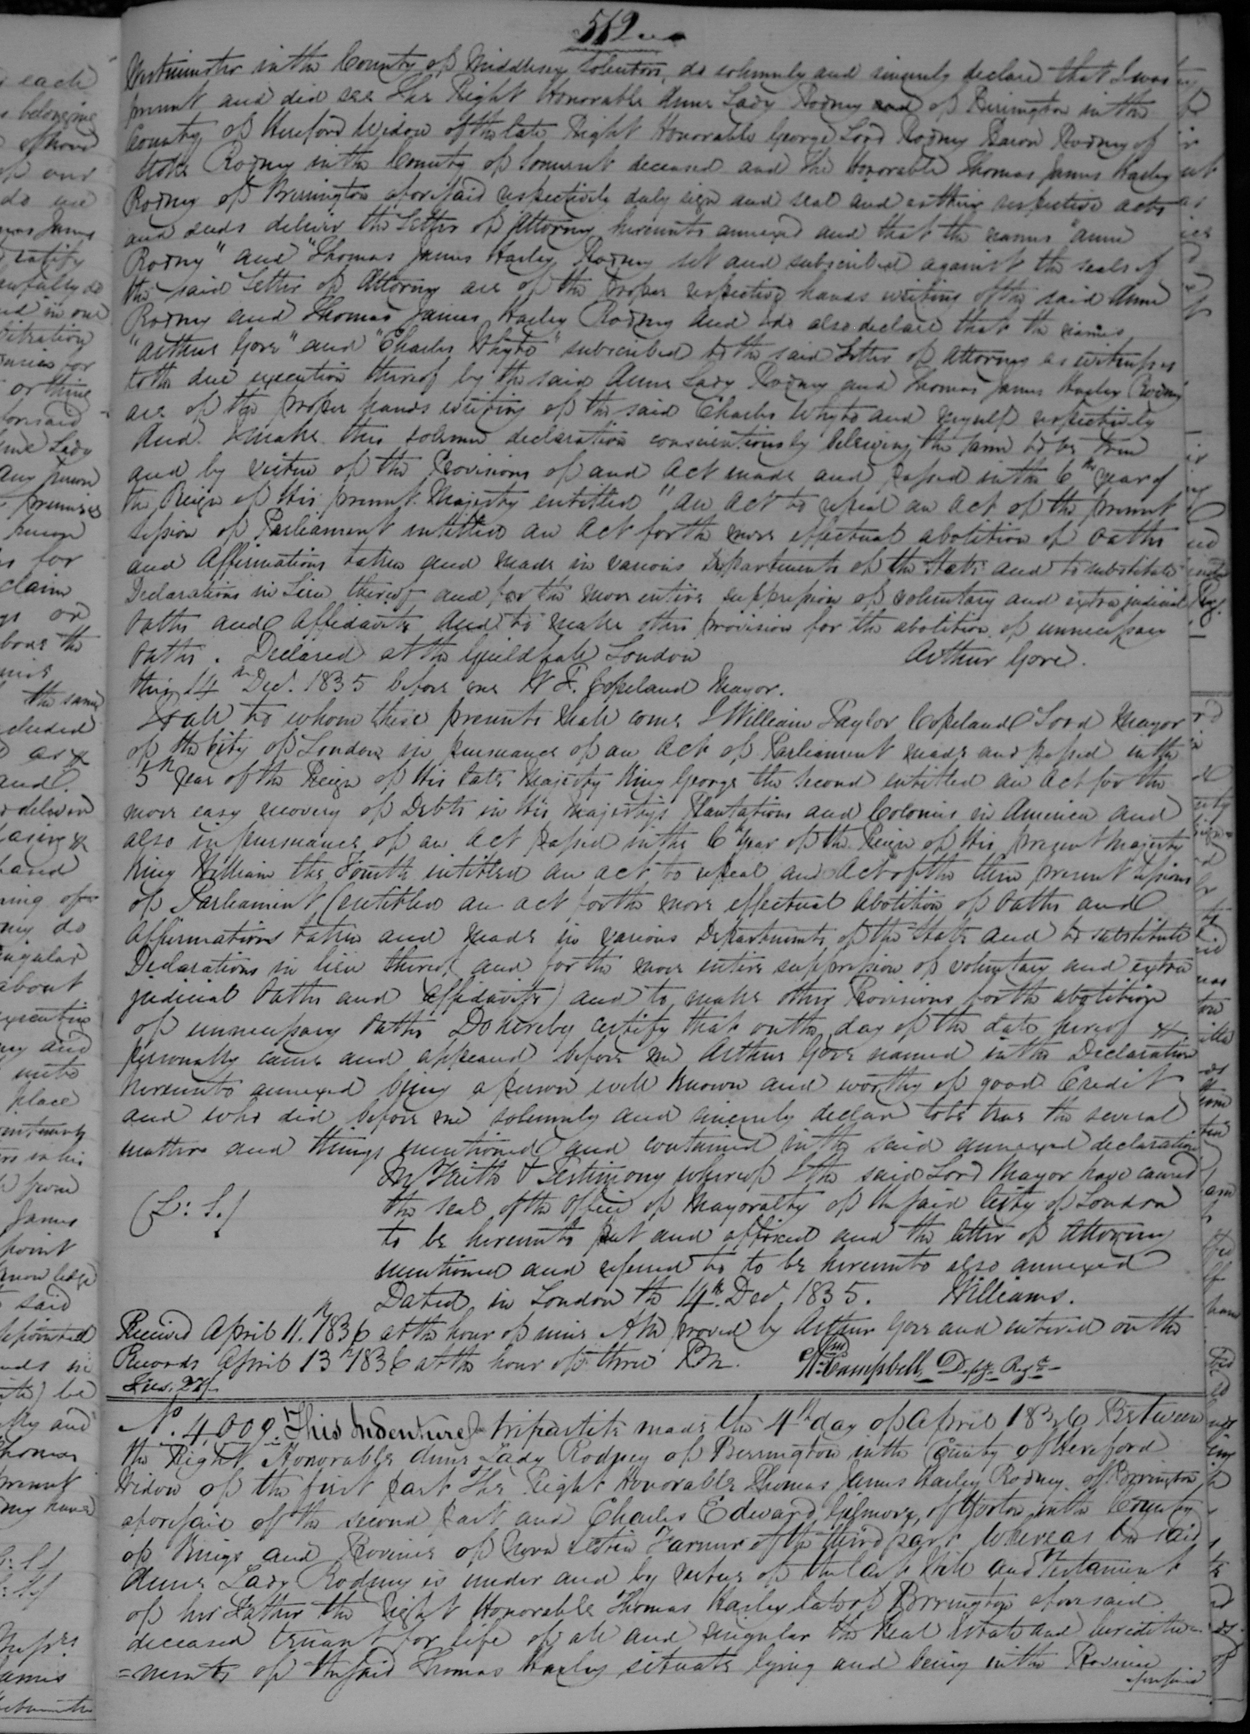 519
Westminster in the County of Middlesex Solicitor, do solemnly and sincerely declare that I was
present and did see The Right Honorable Anne Lady Rodney and of Berrington in the
County of Hereford Widow of the late Right Honorable George Lord Rodney Baron Rodney of
Stoke Rodney in the County of Somerset deceased and The Honorable Thomas James Harley
Rodney of Berrington aforesaid respectively duly sign and seal and as their respective acts
and deeds deliver the Letter of Attorney hereunto annexed and that the names "Anne
Rodney" and "Thomas James Harley Rodney set and subscribed against the seals of
the said Letter of Attorney are of the proper respective hands writing of the said Anne
Rodney and Thomas James Harley Rodney and I do also declare that the names
"Arthur Gore" and "Charles Whyte" subscribed to the said Letter of Attorney as witnesses
to the due execution thereof by the said Anne Lady Rodney and Thomas James Harley Rodney
are of the proper hands writing of the said Charles Whyte and myself respectively
And I make this solemn declaration conscientiously believing the same to be true
and by virtue of the Provisions of and Act made and passed in the 6th year of
the Reign of His present Majesty entitled "an Act to repeal an Act of the present
session of Parliament intitled an Act for the more effectual abolition of oaths
and Affirmations taken and made in various Departments of the State and to substitute
Declarations in Lieu thereof and for the more entire suppression of voluntary and extra judicial
Oaths and Affidavits and to make other provision for the abolition of unnecessary
Oaths. Declared at the Guildhall London Arthur Gore.
this 14th Decr. 1835 before me W T. Copeland Mayor.
To all to whom these presents shall come I William Taylor Copeland Lord Mayor
of the City of London in pursuance of an Act of Parliament made and passed in the
5th year of the Reign of His late Majesty King George the Second entitled an Act for the
more easy recovery of Debts in His Majesty's Plantations and Colonies in America and
also in pursuance of an Act passed in the 6th year of the Reign of His present Majesty
King William the Fourth intitled an act to repeal an Act of the then present Sessions
of Parliament (entitled an act for the more effectual abolition of Oaths and
Affirmations taken and made in various Departments of the State and to substitute
Declarations in lieu thereof, and for the more entire suppression of voluntary and extra
judicial Oaths and Affidavits) and to make other Provisions for the abolition
of unnecessary Oaths Do hereby certify that on the day of the date hereof
personally came and appeared before me Arthur Gore named in the Declaration
hereunto annexed being a person well known and worthy of good Credit
and who did before me solemnly and sincerely declare to be true the several
matters and things mentioned and contained in the said annexed declaration
In Faith & Testimony whereof I the said Lord Mayor have caused
(L: S.) the seal of the office of Mayoralty of the said City of London
to be hereunto put and affixed and the letter of Attorney
mentioned and referred to to be hereunto also annexed
Dated in London the 14th Decr. 1835. Williams.
Received April 11th 1836 at the hour of nine A M proved by Arthur Gore and entered on the
Records April 13th 1836 at the hour of three P.M. Campbell Depy. Regr.
No. 4,009. This Indenture tripartite made the 4th day of April 1836 Between
the Right Honorable Anne Lady Rodney of Berrington in the County of Hereford
Widow of the first part The Right Honorable Thomas James Harley Rodney of Berrington
aforesaid of the second part and Charles Edward Gilmore, of Horton in the County
of Kings and Province of Nova Scotia Farmer of the third part Whereas the said
Anne Lady Rodney is under and by virtue of the last Will and Testament
of her Father the Right Honorable Thomas Harley late of Berrington aforesaid
deceased tenant for life of all and singular the Real Estate and heredita=
=ments of the said Thomas Harley situate lying and being in the Province
aforesaid